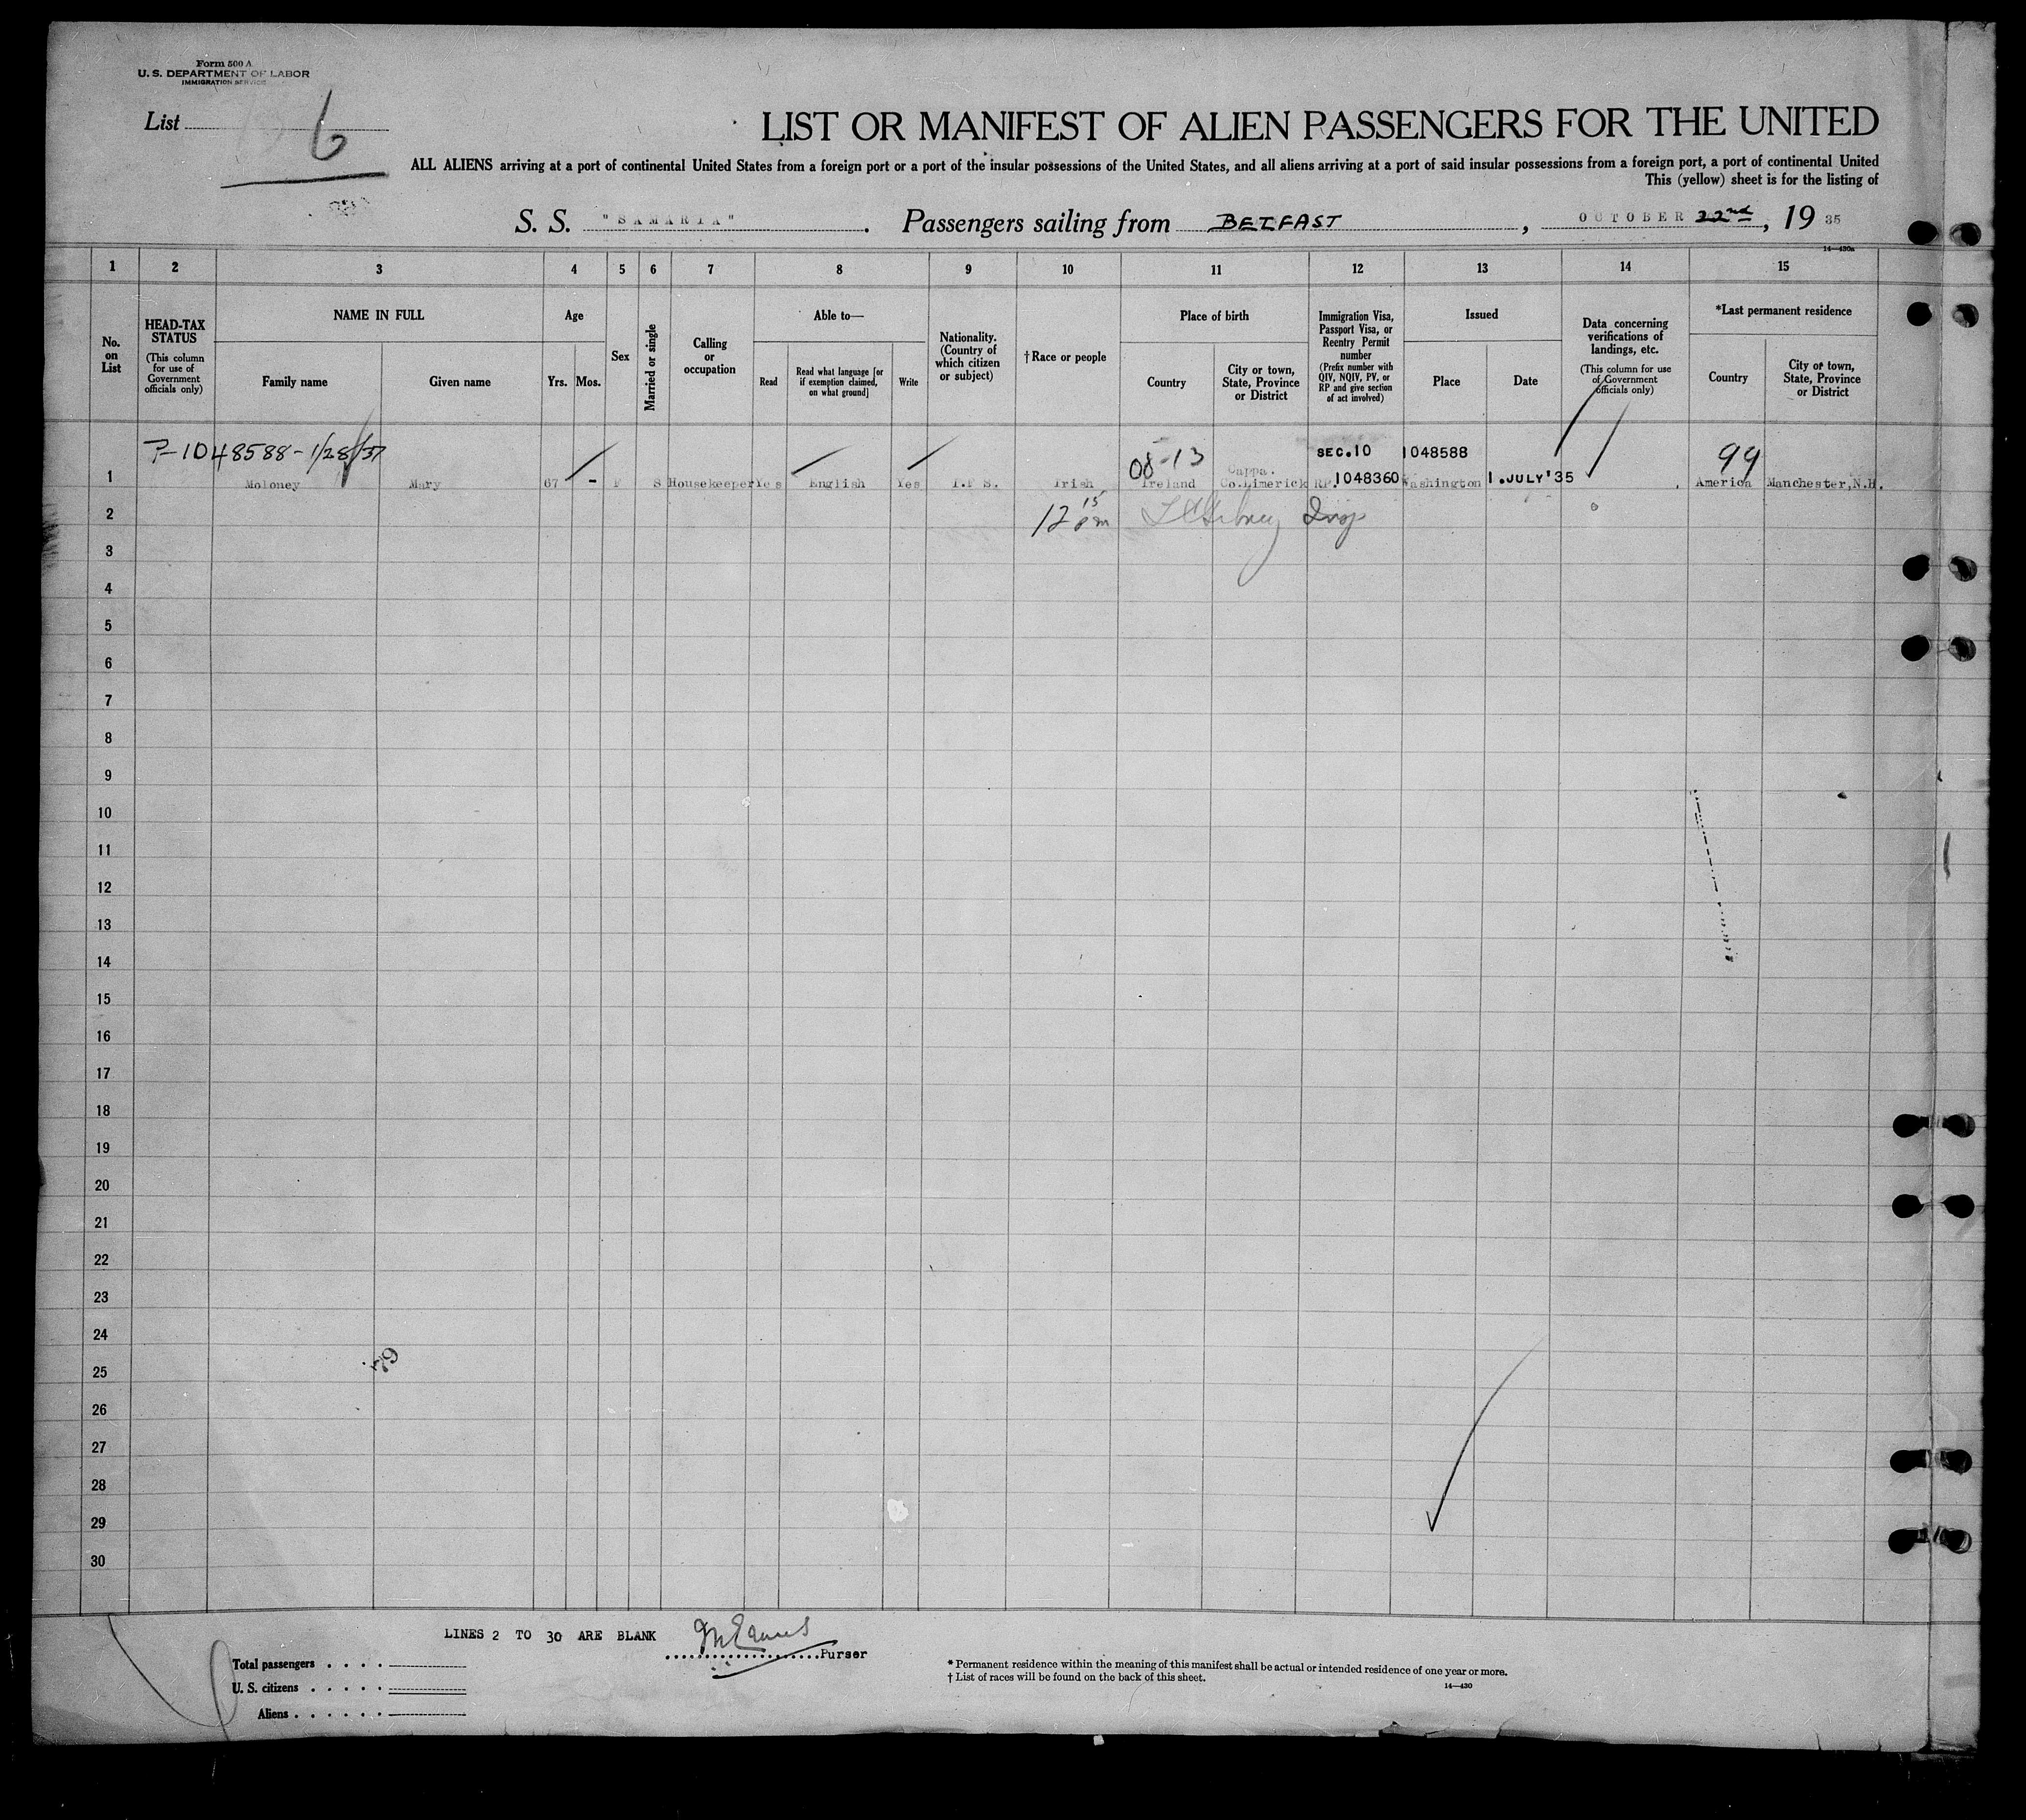 Form 500 A
U. S. DEPARTMENT OF LABOR
IMMIGRATION SERVICE
List 6
LIST OR MANIFEST OF ALIEN PASSENGERS FOR THE UNITED
ALL ALIENS arriving at a port of continental United States from a foreign port or a port of the insular possessions of the United States, and all aliens arriving at a port of said insular possessions from a foreign port, a port of continental United
This (yellow) sheet is for the listing of
S. S. "SAMARIA". Passengers sailing from BELFAST, OCTOBER 22nd, 19 35
14—430a
1 2 3 4 5 6 7 8 9 10 11 12 13 14 15
No. on List
HEAD-TAX STATUS
(This column for use of Government officials only)
NAME IN FULL
Family name
Given name
Age
Yrs.
Mos.
Sex
Married or single
Calling or occupation
Able to—
Read
Read what language [or if exemption claimed, on what ground]
Write
Nationality. (Country of which citizen or subject)
†Race or people
Place of birth
Country
City or town, State, Province or District
Immigration Visa, Passport Visa, or Reentry Permit number
(Prefix number with QIV, NQIV, PV, or RP and give section of act involved)
Issued
Place
Date
Data concerning verifications of landings, etc.
(This column for use of Government officials only)
*Last permanent residence
Country
City or town, State, Province or District
1048588-1/28/37 08-13 SEC.10 1048588 99
Cappa.
1 Moloney Mary 67 - F S Housekeeper Yes English Yes I.F S. Irish Ireland Co.Limerick RP.1048360 Washington 1.JULY'35 America Manchester,N.H.
2 12 15 pm Insp
3
4
5
6
7
8
9
10
11
12
13
14
15
16
17
18
19
20
21
22
23
24
79
25
26
27
28
29
30
LINES 2 TO 30 ARE BLANK
Purser
Total passengers
U. S. citizens
Aliens
* Permanent residence within the meaning of this manifest shall be actual or intended residence of one year or more.
† List of races will be found on the back of this sheet.
14—430